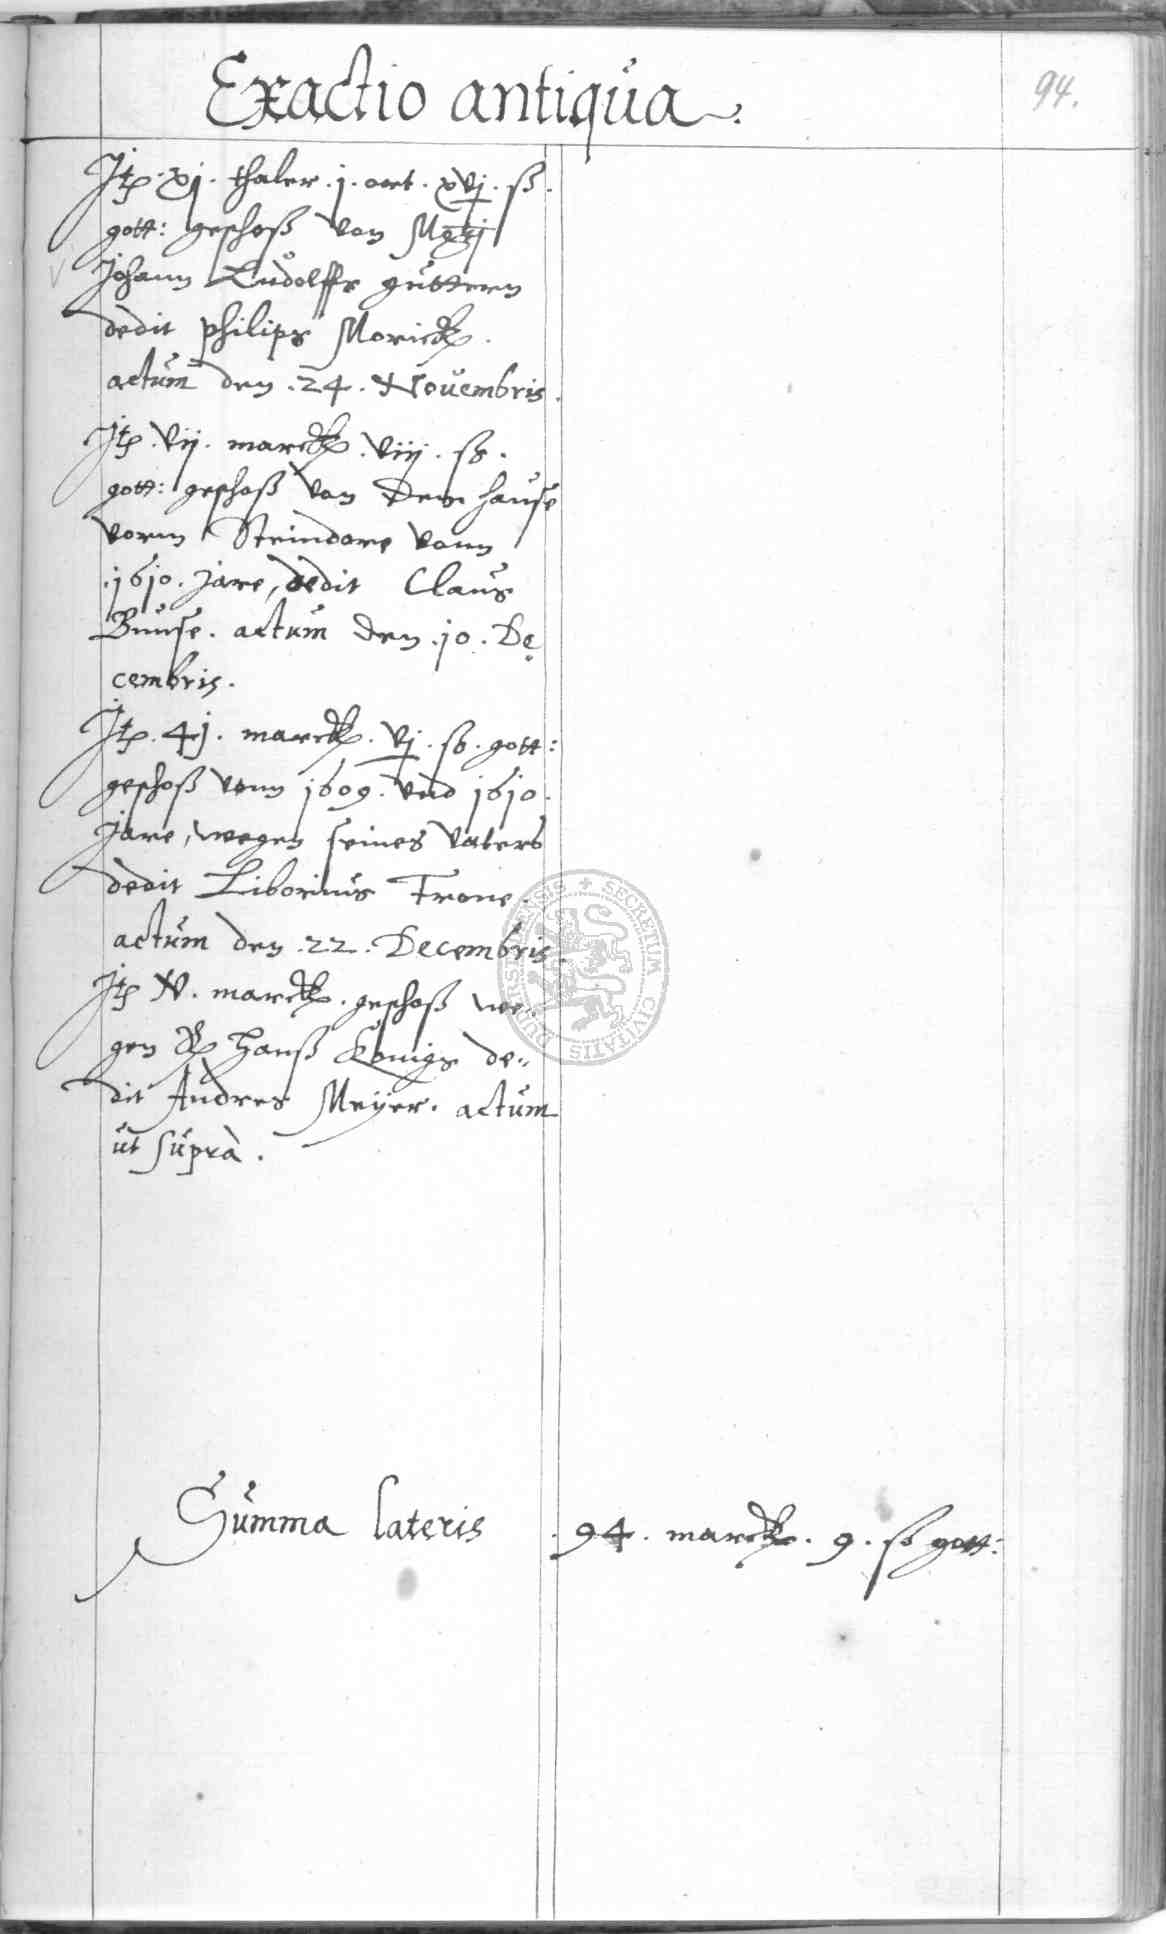 Exactio antiqua
94.
Itẽ. xj. thaler. j. ort. xvj. ß.
gott: geschoß von Mgrj
Johann Ludolffs guttern
dedit philips Morick.
actum den .24. Novembris.
Itẽ. vij. marck. viij. ß.
gott: geschoß von dem hause
vorm Steindore vonn
.1610. Jare, dedit Claus
Bunse. actum den .10. De
cembris.
Itẽ. 4j. marck. vj. ß. gott:
geschoß vonn 1609. und 1610.
Jare, wegen seines Vaters
dedit Liborius Trone.
actum den .22. Decembris.
Itẽ V. marck. geschoß we„
gen Hanß Konigs de„
dit Andres Meyer. actum
ut supra.
Summa lateris .94. marck. 9. ß gott:
SECRETUM CIVITATIS DUDERSTADENSIS